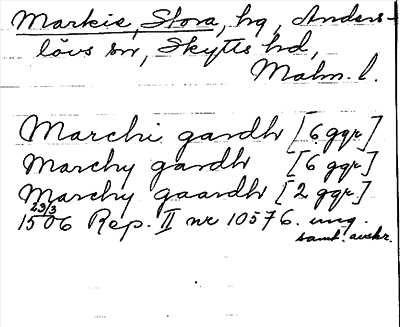 Markie, Stora, hg, Anders-
lövs sn, Skytts hd,
Malm. l.
Marchi gardh [6 ggr]
Marchy gardh [6 ggr]
Marchy gaardh [2 ggr]
23/3 1506 Rep. II nr 10576. ung.
samt. avskr.